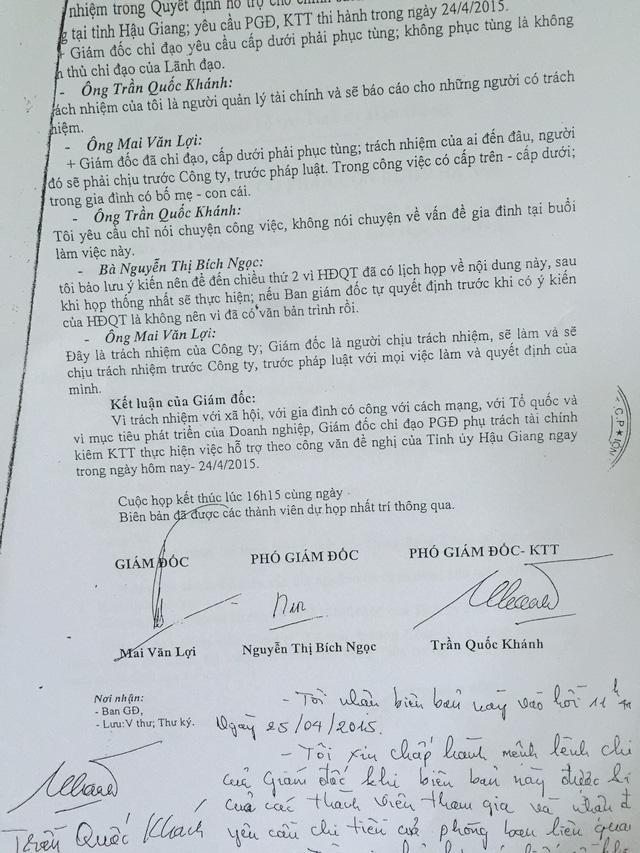 nhiệm trong Quyết định hỗ trợ cho
tại tỉnh Hậu Giang; yêu cầu PGĐ, KTT thi hành trong ngày 24/4/2015.
+ Giám đốc chỉ đạo yêu cầu cấp dưới phải phục tùng; không phục tùng là không
thủ chỉ đạo của Lãnh đạo.
- Ông Trần Quốc Khánh:
rách nhiệm của tôi là người quản lý tài chính và sẽ báo cáo cho những người có trách
hiệm.
- Ông Mai Văn Lợi:
+ Giám đốc đã chỉ đạo, cấp dưới phải phục tùng; trách nhiệm của ai đến đâu, người
đó sẽ phải chịu trước Công ty, trước pháp luật. Trong công việc có cấp trên - cấp dưới;
trong gia đình có bố mẹ - con cái.
- Ông Trần Quốc Khánh:
Tôi yêu cầu chỉ nói chuyện công việc, không nói chuyện về vấn đề gia đình tại buổi
làm việc này.
- Bà Nguyễn Thị Bích Ngọc:
tôi bảo lưu ý kiến nên để đến chiều thứ 2 vì HĐQT đã có lịch họp về nội dung này, sau
khi họp thống nhất sẽ thực hiện; nếu Ban giám đốc tự quyết định trước khi có ý kiến
của HĐQT là không nên vì đã có văn bản trình rồi.
- Ông Mai Văn Lợi:
Đây là trách nhiệm của Công ty; Giám đốc là người chịu trách nhiệm, sẽ làm và sẽ
chịu trách nhiệm trước Công ty, trước pháp luật với mọi việc làm và quyết định của
mình.
Kết luận của Giám đốc:
Vì trách nhiệm với xã hội, với gia đình có công với cách mạng, với Tổ quốc và
vì mục tiêu phát triển của Doanh nghiệp, Giám đốc chỉ đạo PGĐ phụ trách tài chính
kiêm KTT thực hiện việc hỗ trợ theo công văn đề nghị của Tỉnh ủy Hậu Giang ngay
trong ngày hôm nay- 24/4/2015.
Cuộc họp kết thúc lúc 16h15 cùng ngày
Biên bản đã được các thành viên dự họp nhất trí thông qua.
GIÁM ĐỐC PHÓ GIÁM ĐỐC PHÓ GIÁM ĐỐC- KTT
Mai Văn Lợi Nguyễn Thị Bích Ngọc Trần Quốc Khánh
Nơi nhận:
- Ban GĐ,
- Lưu:V thư; Thư ký.
- Tôi nhận biên bản này vào hồi 11h
Ngày 25/04/2015.
- Tôi xin chấp hành mệnh lệnh chi
của Giám đốc khi biên bản này được kí
của các thành viên tham gia và nhận đ
Trần Quốc Khánh yêu cầu chi tiền của phòng ban liên qua